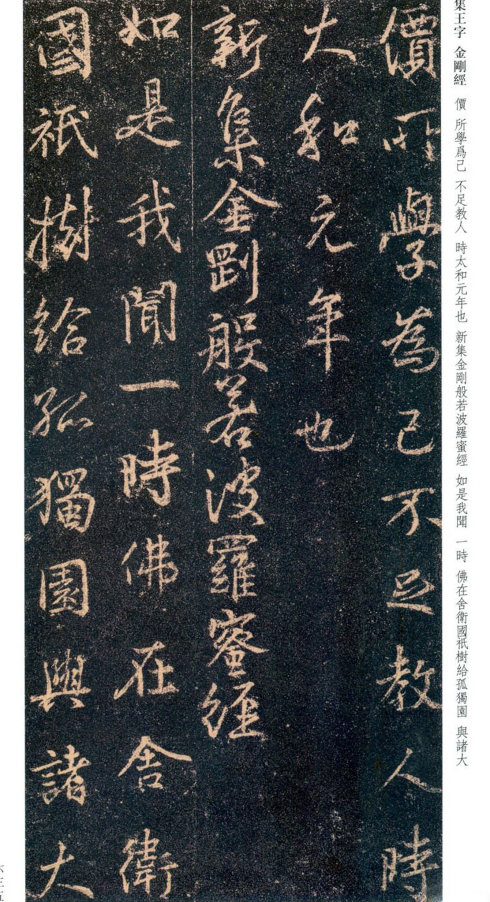 集王字 金剛經 價 所學爲己 不足教人 時太和元年也 新集金剛般若波羅蜜經 如是我聞 一時 佛在舍衛國祇樹給孤獨園 與諸大
價所學為己不足教人時
大和元年也
新集金剛般若波羅蜜經
如是我聞一時佛在舍衛
國祇樹給孤獨園與諸大
六三五